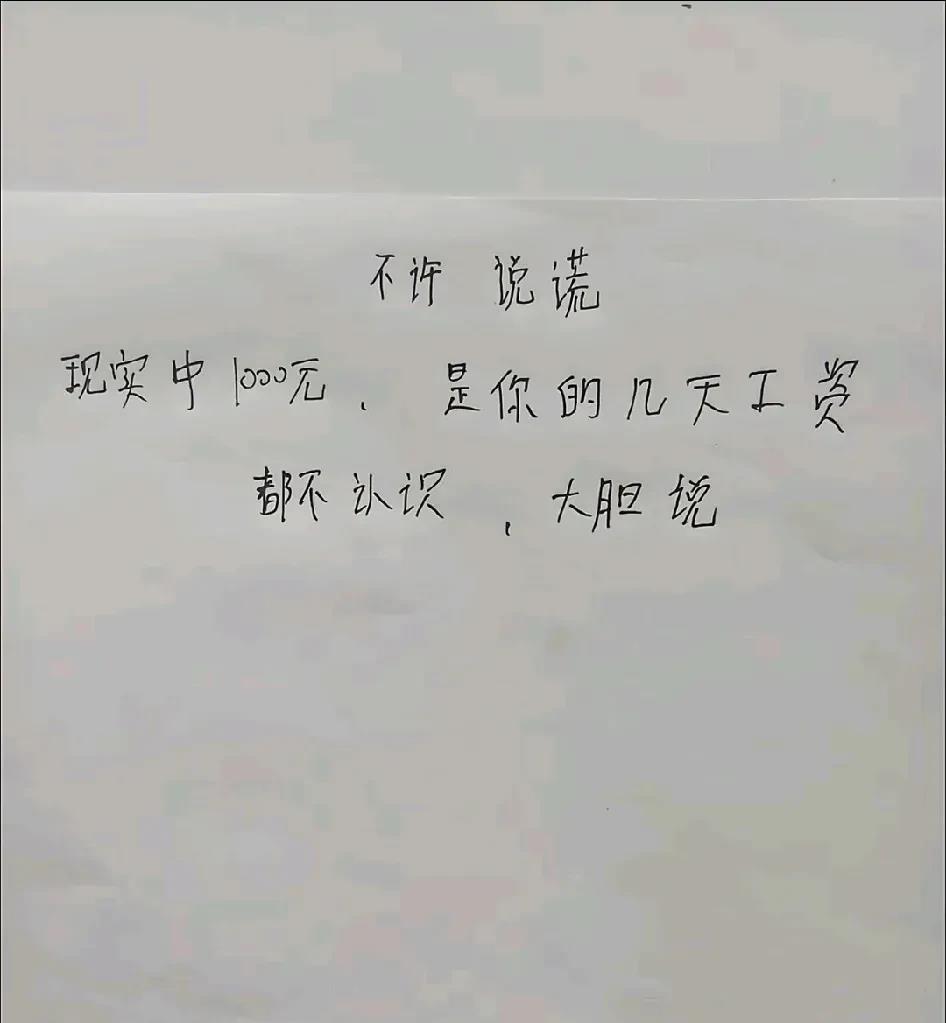 不许 说谎
现实中1000元，是你的几天工资
都不认识，大胆说